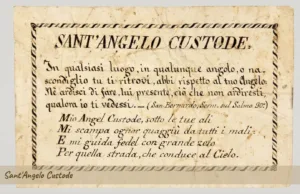 SANT'ANGELO CUSTODE.
In qualsiasi luogo, in qualunque angolo, o na-
scondiglio tu ti ritrovi, abbi rispetto al tuo Angelo.
Nè ardisci di fare, lui presente, ciò che non ardiresti,
qualora io ti vedessi. — (San Bernardo, Serm. del Salmo 90.)
Mio Angel Custode, sotto le tue ali
Mi scampa ognor quaggiù da tutti i mali;
E mi guida fedel con grande zelo
Per quella strada, che conduce al Cielo.
Sant'Angelo Custode